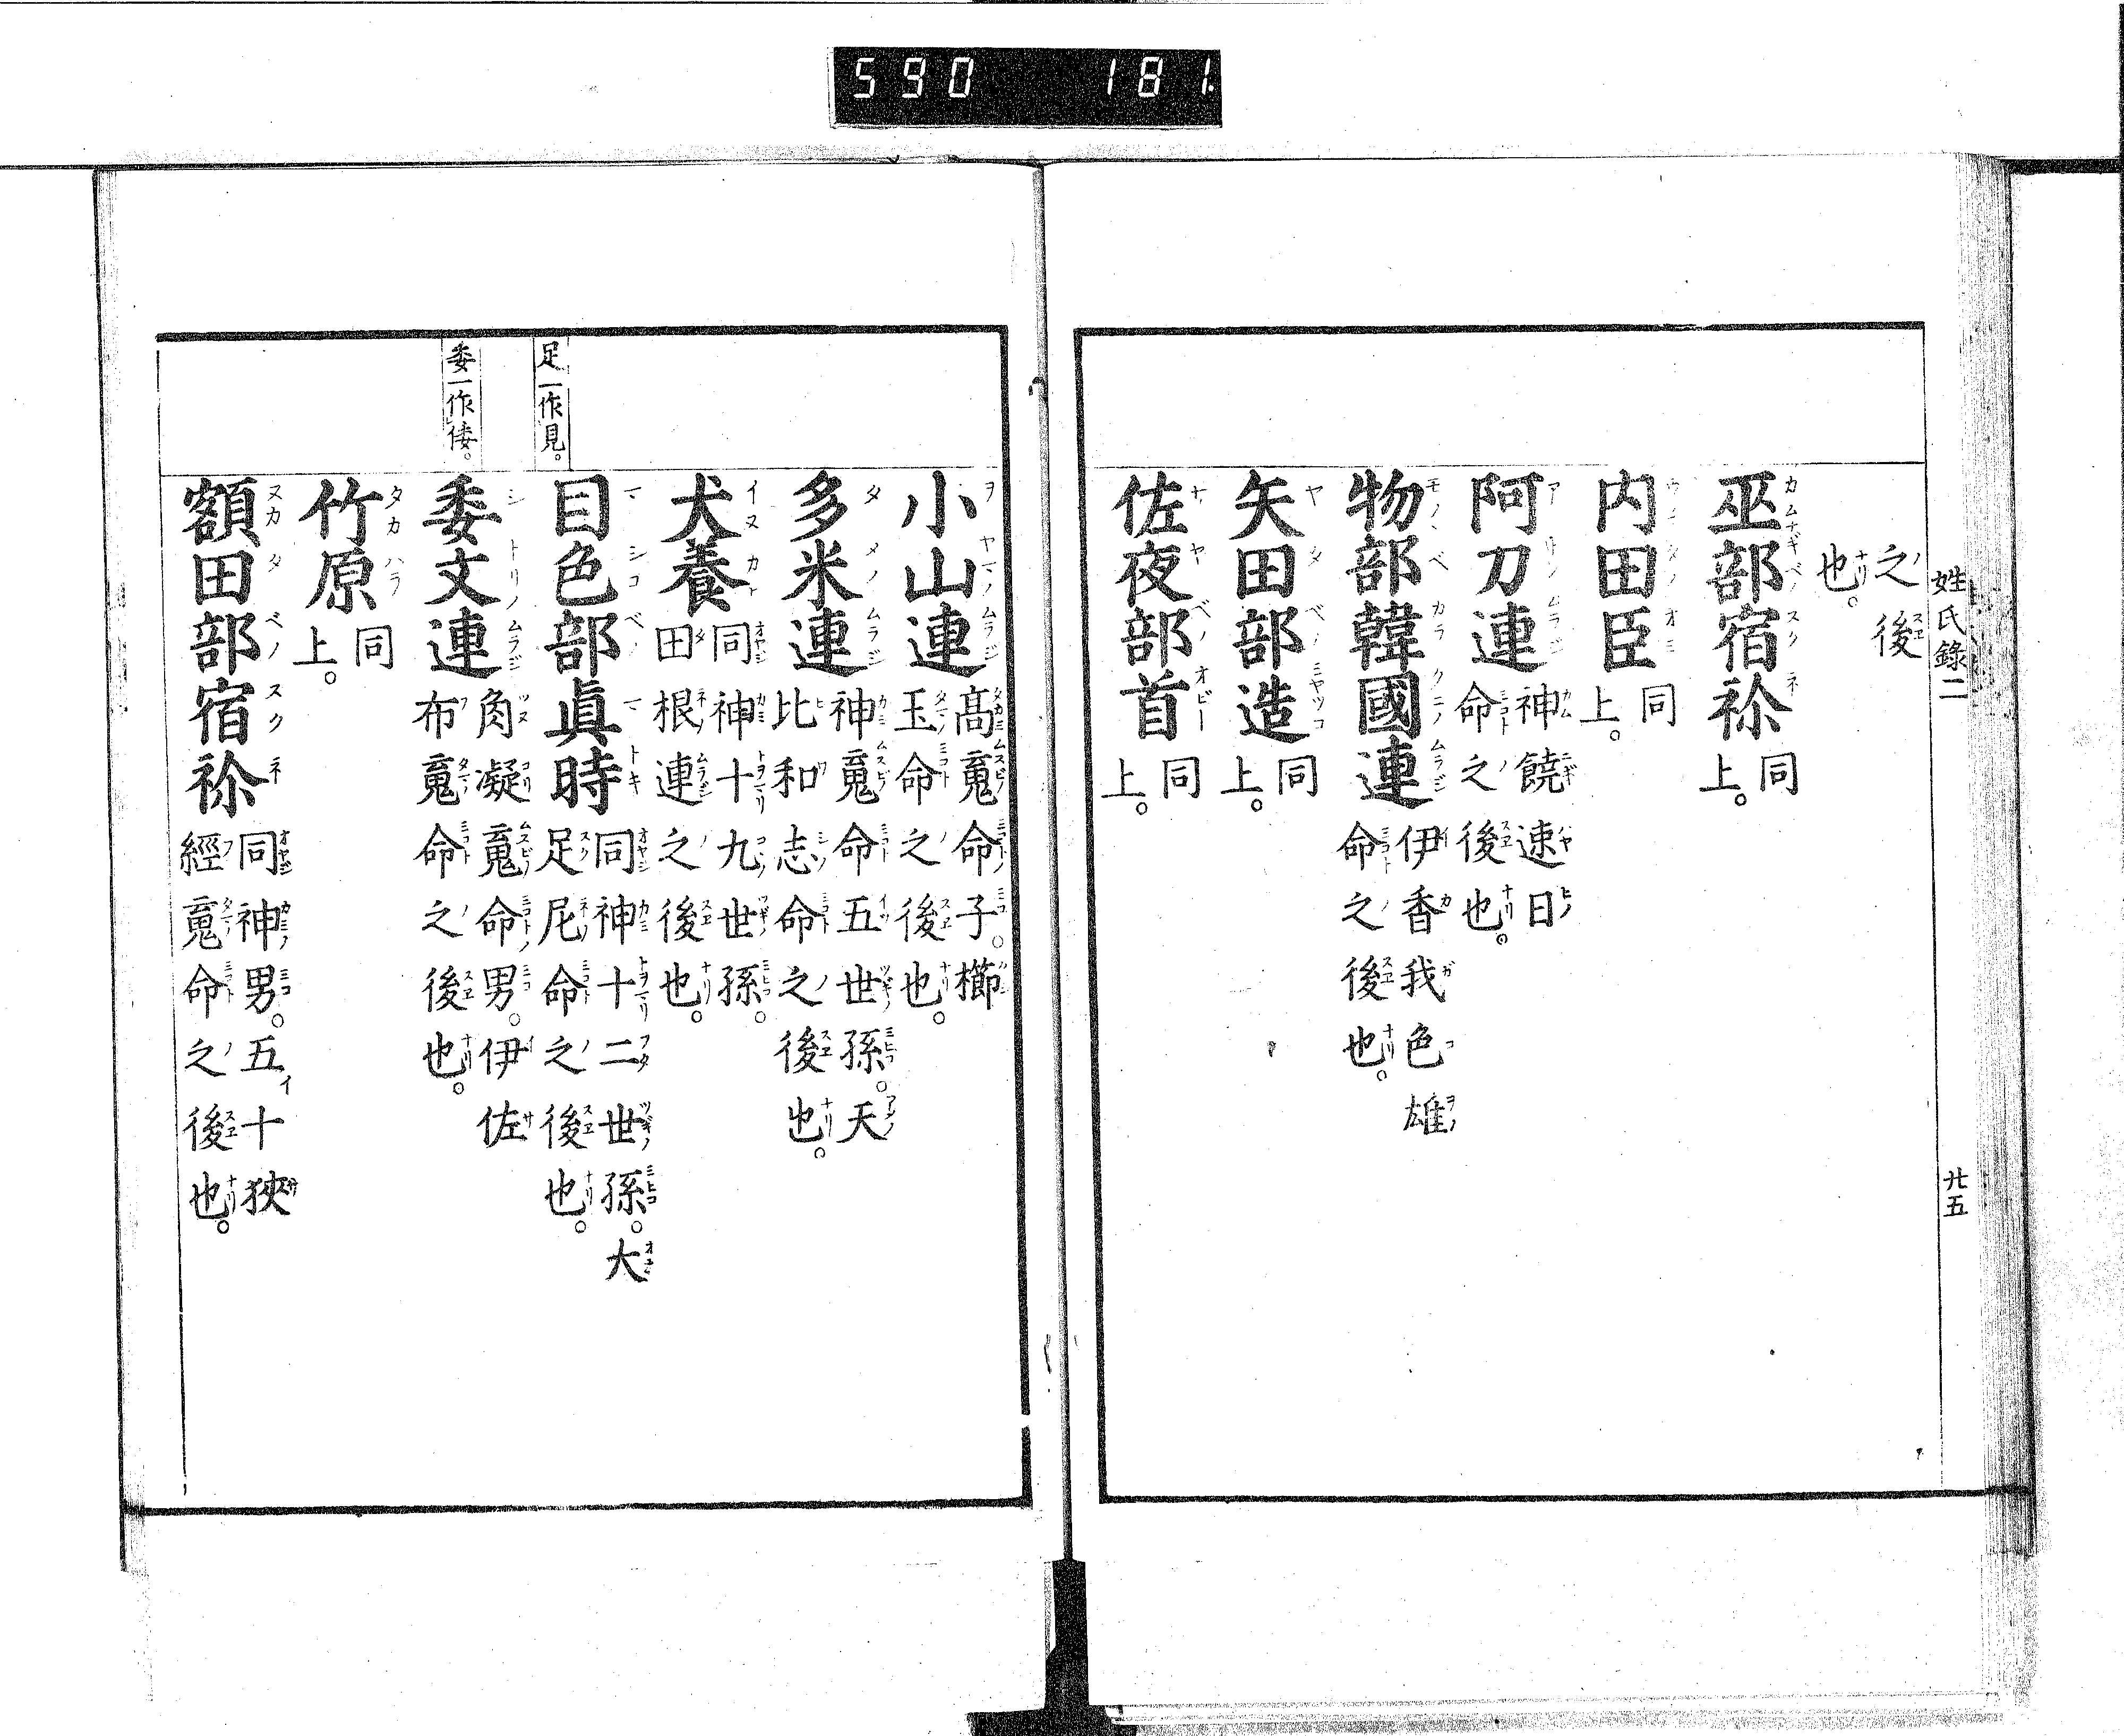 590 181
姓氏錄二
廿五
之後
也。
巫部宿祢 同
上。
内田臣 同
上。
阿刀連 神饒速日
命之後也。
物部韓國連 伊香我色雄
命之後也。
矢田部造 同
上。
佐夜部首 同
上。
小山連 髙䰟命子。櫛
玉命之後也。
多米連 神䰟命五世孫。天
比和志命之後也。
犬養 同神十九世孫。
田根連之後也。
足一作見。
目色部眞時 同神十二世孫。大
足尼命之後也。
委一作倭。
委文連 角凝䰟命男。伊佐
布䰟命之後也。
竹原 同
上。
額田部宿祢 同神男。五十狹
經䰟命之後也。